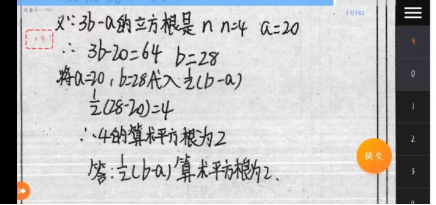 又∵3b-a的立方根是n n=4 a=20
∴ 3b-20=64 b=28
将a=20,b=28代入½(b-a)
½(28-20)=4
∴4的算术平方根为2
答:½(b-a)算术平方根为2.
提交
4
0
1
2
3